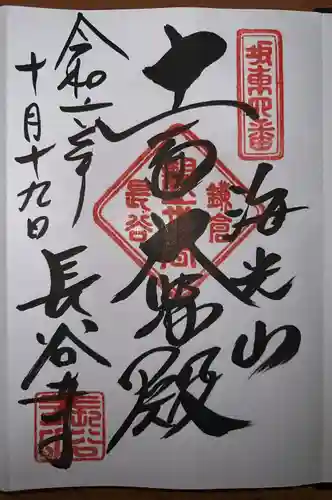 坂東四番
海光山
鎌倉
十一面大悲殿
長谷
令和六年
十月十九日
長谷寺